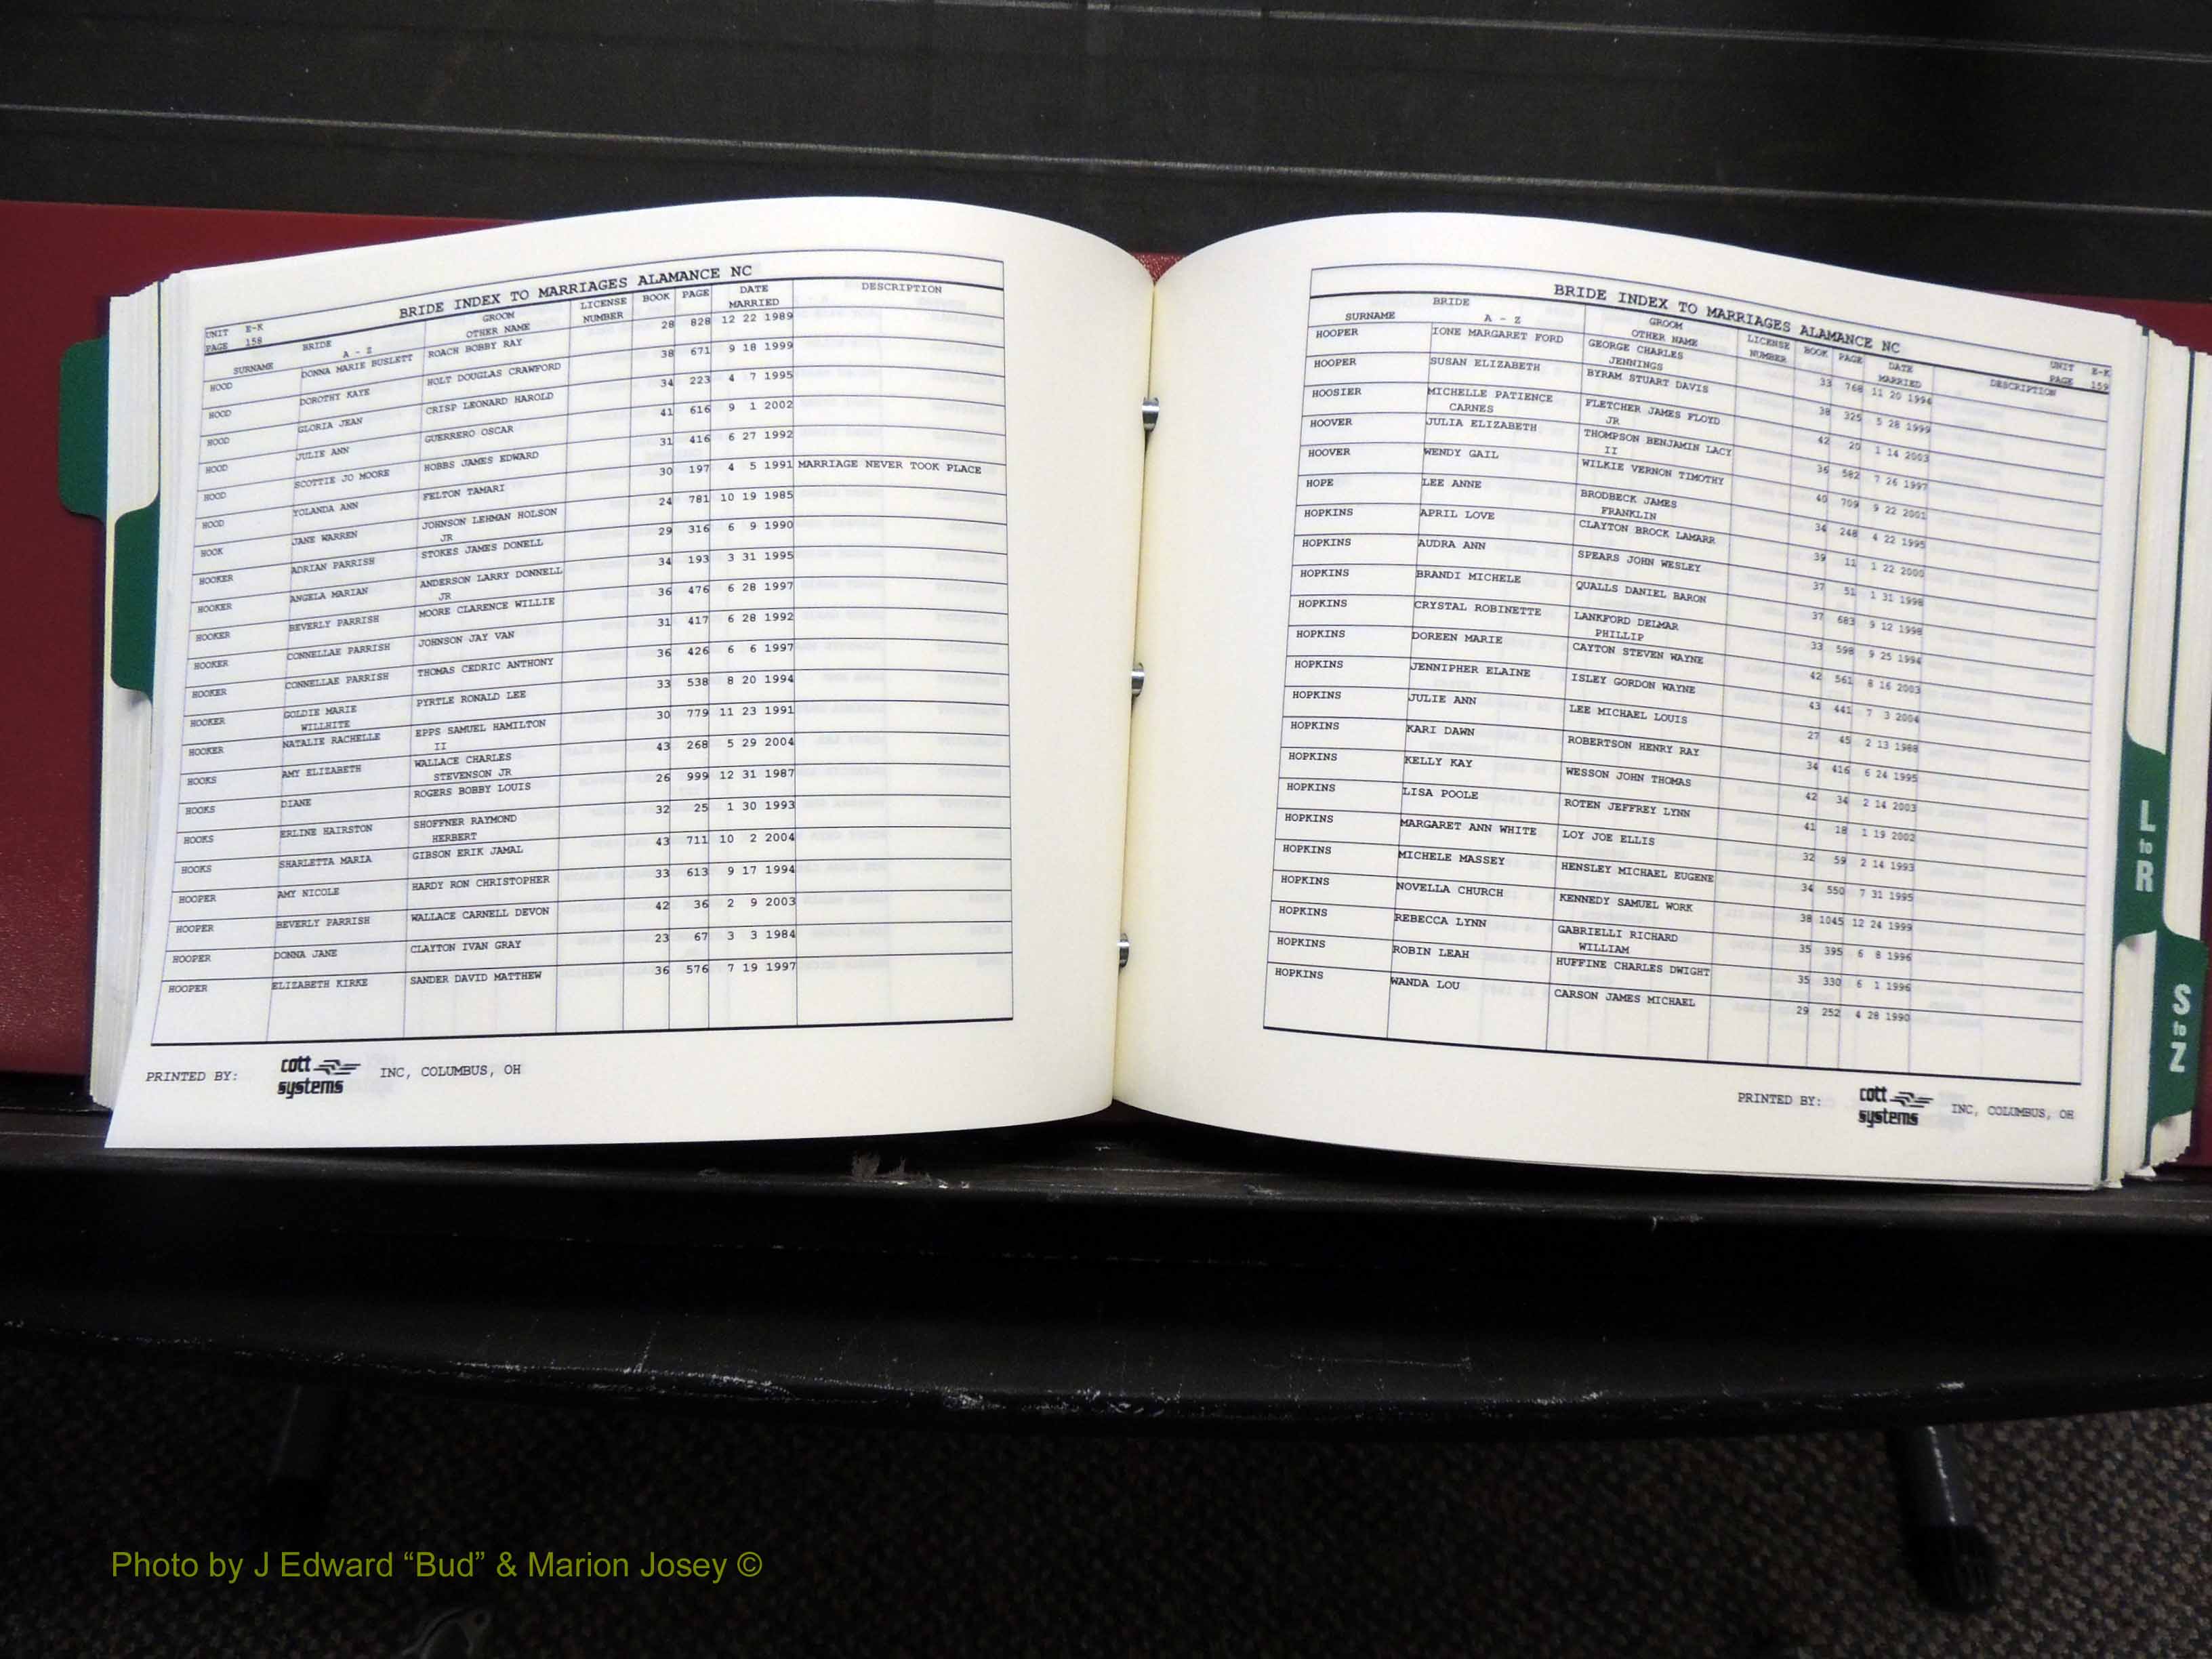 BRIDE INDEX TO MARRIAGES ALAMANCE NC
UNIT E-K
PAGE 158
SURNAME BRIDE A - Z GROOM OTHER NAME LICENSE NUMBER BOOK PAGE DATE MARRIED DESCRIPTION
HOOD DONNA MARIE BUSLETT ROACH BOBBY RAY 28 828 12 22 1989
HOOD DOROTHY KAYE HOLT DOUGLAS CRAWFORD 38 671 9 18 1999
HOOD GLORIA JEAN CRISP LEONARD HAROLD 34 223 4 7 1995
HOOD JULIE ANN GUERRERO OSCAR 41 616 9 1 2002
HOOD SCOTTIE JO MOORE HOBBS JAMES EDWARD 31 416 6 27 1992
HOOD YOLANDA ANN FELTON TAMARI 30 197 4 5 1991 MARRIAGE NEVER TOOK PLACE
HOOK JANE WARREN JOHNSON LEHMAN HOLSON 24 781 10 19 1985
JR
HOOKER ADRIAN PARRISH STOKES JAMES DONELL 29 316 6 9 1990
HOOKER ANGELA MARIAN ANDERSON LARRY DONNELL 34 193 3 31 1995
JR
HOOKER BEVERLY PARRISH MOORE CLARENCE WILLIE 36 476 6 28 1997
HOOKER CONNELLAE PARRISH JOHNSON JAY VAN 31 417 6 28 1992
HOOKER CONNELLAE PARRISH THOMAS CEDRIC ANTHONY 36 426 6 6 1997
HOOKER GOLDIE MARIE PYRTLE RONALD LEE 33 538 8 20 1994
WILLHITE
HOOKER NATALIE RACHELLE EPPS SAMUEL HAMILTON 30 779 11 23 1991
II
HOOKS AMY ELIZABETH WALLACE CHARLES 43 268 5 29 2004
STEVENSON JR
HOOKS DIANE ROGERS BOBBY LOUIS 26 999 12 31 1987
HOOKS ERLINE HAIRSTON SHOFFNER RAYMOND 32 25 1 30 1993
HERBERT
HOOKS SHARLETTA MARIA GIBSON ERIK JAMAL 43 711 10 2 2004
HOOPER AMY NICOLE HARDY RON CHRISTOPHER 33 613 9 17 1994
HOOPER BEVERLY PARRISH WALLACE CARNELL DEVON 42 36 2 9 2003
HOOPER DONNA JANE CLAYTON IVAN GRAY 23 67 3 3 1984
HOOPER ELIZABETH KIRKE SANDER DAVID MATTHEW 36 576 7 19 1997
PRINTED BY: cott systems INC, COLUMBUS, OH
BRIDE INDEX TO MARRIAGES ALAMANCE NC
UNIT E-K
PAGE 159
SURNAME BRIDE A - Z GROOM OTHER NAME LICENSE NUMBER BOOK PAGE DATE MARRIED DESCRIPTION
HOOPER IONE MARGARET FORD GEORGE CHARLES 33 768 11 20 1994
JENNINGS
HOOPER SUSAN ELIZABETH BYRAM STUART DAVIS 38 325 5 28 1999
HOOSIER MICHELLE PATIENCE FLETCHER JAMES FLOYD 42 20 1 14 2003
CARNES JR
HOOVER JULIA ELIZABETH THOMPSON BENJAMIN LACY 36 582 7 26 1997
II
HOOVER WENDY GAIL WILKIE VERNON TIMOTHY 40 709 9 22 2001
HOPE LEE ANNE BRODBECK JAMES 34 248 4 22 1995
FRANKLIN
HOPKINS APRIL LOVE CLAYTON BROCK LAMARR 39 11 1 22 2000
HOPKINS AUDRA ANN SPEARS JOHN WESLEY 37 51 1 31 1998
HOPKINS BRANDI MICHELE QUALLS DANIEL BARON 37 683 9 12 1998
HOPKINS CRYSTAL ROBINETTE LANKFORD DELMAR 33 598 9 25 1994
PHILLIP
HOPKINS DOREEN MARIE CAYTON STEVEN WAYNE 42 561 8 16 2003
HOPKINS JENNIPHER ELAINE ISLEY GORDON WAYNE 43 441 7 3 2004
HOPKINS JULIE ANN LEE MICHAEL LOUIS 27 45 2 13 1988
HOPKINS KARI DAWN ROBERTSON HENRY RAY 34 416 6 24 1995
HOPKINS KELLY KAY WESSON JOHN THOMAS 42 34 2 14 2003
HOPKINS LISA POOLE ROTEN JEFFREY LYNN 41 18 1 19 2002
HOPKINS MARGARET ANN WHITE LOY JOE ELLIS 32 59 2 14 1993
HOPKINS MICHELE MASSEY HENSLEY MICHAEL EUGENE 34 550 7 31 1995
HOPKINS NOVELLA CHURCH KENNEDY SAMUEL WORK 38 1045 12 24 1999
HOPKINS REBECCA LYNN GABRIELLI RICHARD 35 395 6 8 1996
WILLIAM
HOPKINS ROBIN LEAH HUFFINE CHARLES DWIGHT 35 330 6 1 1996
HOPKINS WANDA LOU CARSON JAMES MICHAEL 29 252 4 28 1990
PRINTED BY: cott systems INC, COLUMBUS, OH
L to R
S to Z
Photo by J Edward “Bud” & Marion Josey ©